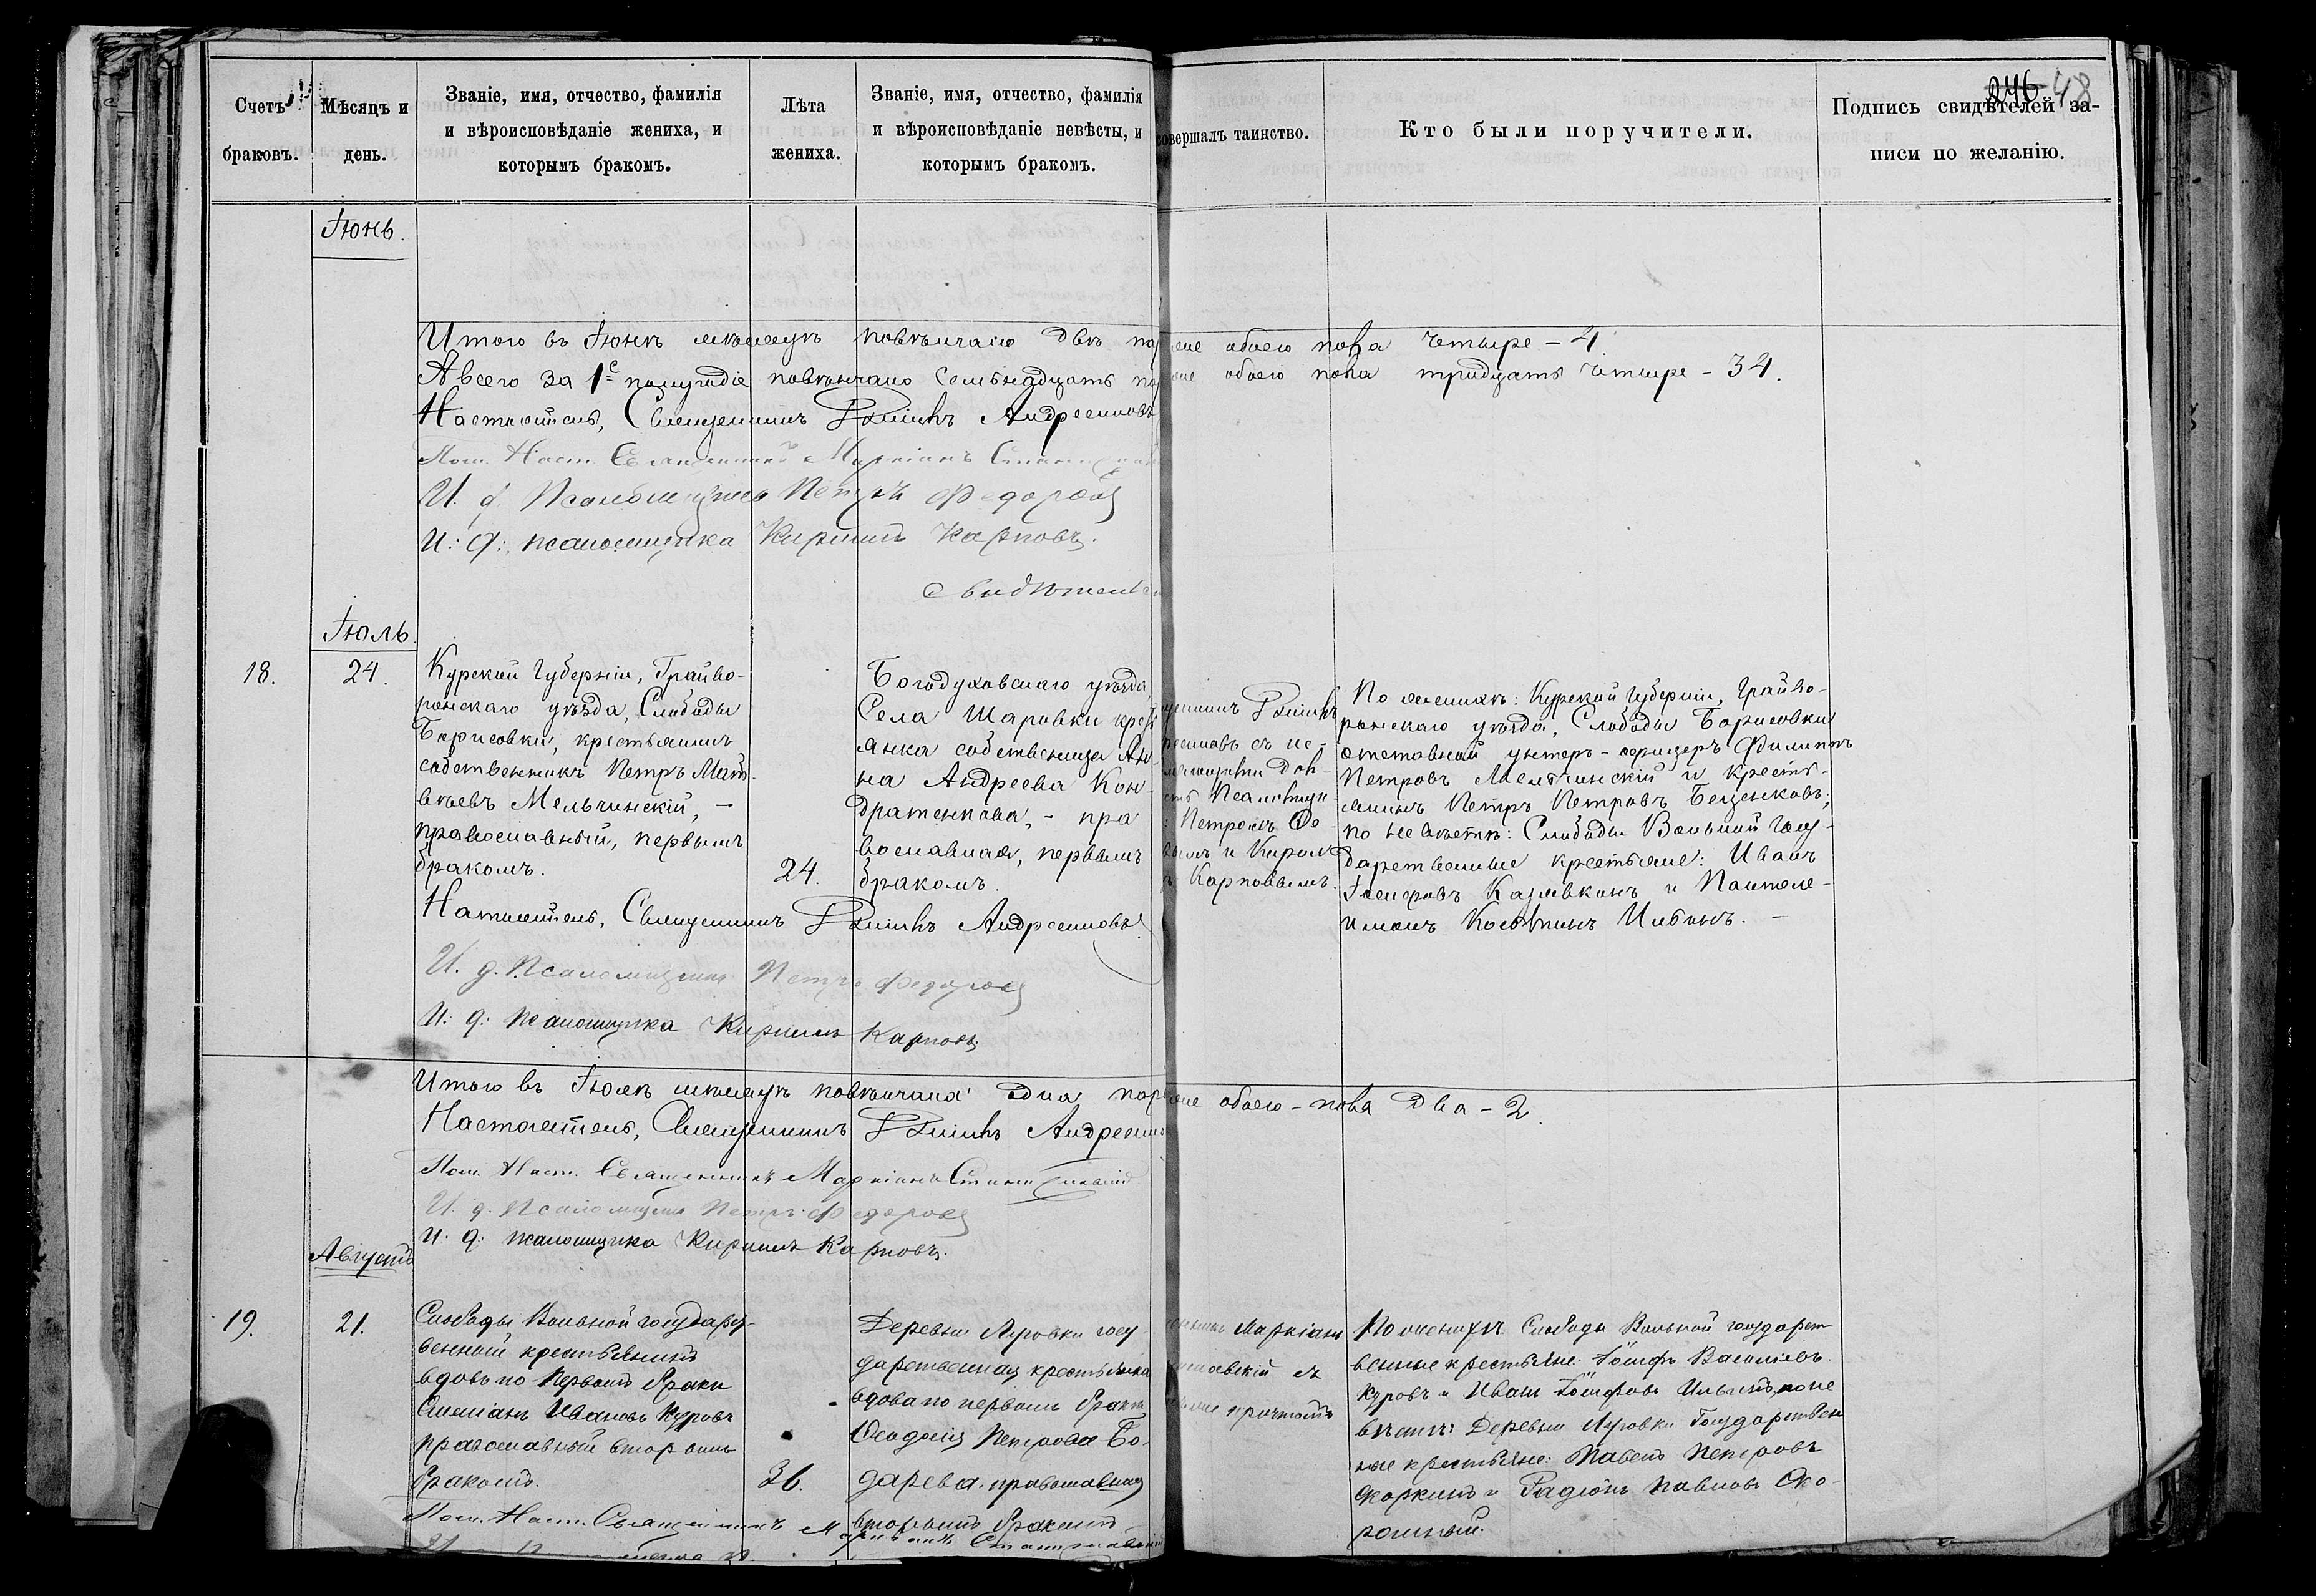 246 48
Счетъ
браковъ.
Мѣсяцъ и
день.
Званіе, имя, отчество, фамилія
и вѣроисповѣданіе жениха, и
которымъ бракомъ.
Лѣта
жениха.
Званіе, имя, отчество, фамилія
и вѣроисповѣданіе невѣсты, и
которымъ бракомъ.
совершалъ таинство.
Кто были поручители.
Подпись свидѣтелей за-
писи по желанію.
Іюнь.
Итого въ Іюнѣ мѣсяцѣ повѣнчано двѣ обоего пола четыре - 4.
А всего за 1е полугодіе повѣнчано семьнадцать обоего пола тридцать четыре - 34.
Настоятель, Священникъ Андреенковъ
Пом. Наст. Священникъ Маркіанъ
И. д. Псаломщика Петръ Федоровъ
И: д: псаломщика Кириллъ Карповъ.
Свидѣтел
Іюль.
18.
24.
Курской Губерніи, Грайво-
ронскаго уѣзда, Слободы
Борисовки, крестьянинъ
собственникъ Петръ Матѳ-
ѣевъ Мельчинскій, -
православный, первымъ
бракомъ.
24.
Богодуховскаго уѣзда,
Села Шаровки крест
янка собственница Ан-
на Андреева Кон-
дратенкова, - пра
вославная, первымъ
бракомъ.
Петромъ Ѳе-
и Кирил
Карповымъ.
По женихѣ: Курской Губерніи, Грайво-
ронскаго уѣзда, Слободы Борисовки
отставной унтеръ-офицеръ Филиппъ
Петровъ Мельчинскій и крестья-
нинъ Петръ Петровъ
по невѣстѣ: Слободы Вольной Госу-
дарственные крестьяне: Иванъ
Іосифовъ и Пантеле-
имонъ Ильинъ. -
Настоятель, Священникъ Андреенковъ
И. д. Псаломщика Петръ Федоровъ
И: д: псаломщика Кириллъ Карповъ
Итого въ Іюлѣ мѣсяцѣ повѣнчана одна обоего пола два - 2.
Настоятель, Священникъ Андреенко
Пом. Наст. Священникъ Маркіанъ
И. д. Псаломщика Петръ Федоровъ
И. д: псаломщика Кириллъ Карповъ.
Августъ
19.
21.
Слободы Вольной государст-
венной крестьянинъ
вдовъ по первомъ бракѣ
Ивановъ Куровъ
православный вторымъ
бракомъ.
36.
Деревни Луговки госу-
дарственная крестьянка
вдова по первомъ бракѣ
Ѳеодосія Петрова Бо-
дарева православная
вторымъ бракомъ
Маркіанъ
съ
причтомъ
По женихѣ Слободы Вольной государст
венные крестьяне: Іосифъ Василіевъ
Куровъ и Иванъ Іосифовъ Ильинъ, по не
вѣстѣ: Деревни Луговки Государствен
ные крестьяне: Павелъ Петровъ
и Радіонъ Павловъ Ско-
ромный.
Пом. Наст. Священникъ Маркіанъ